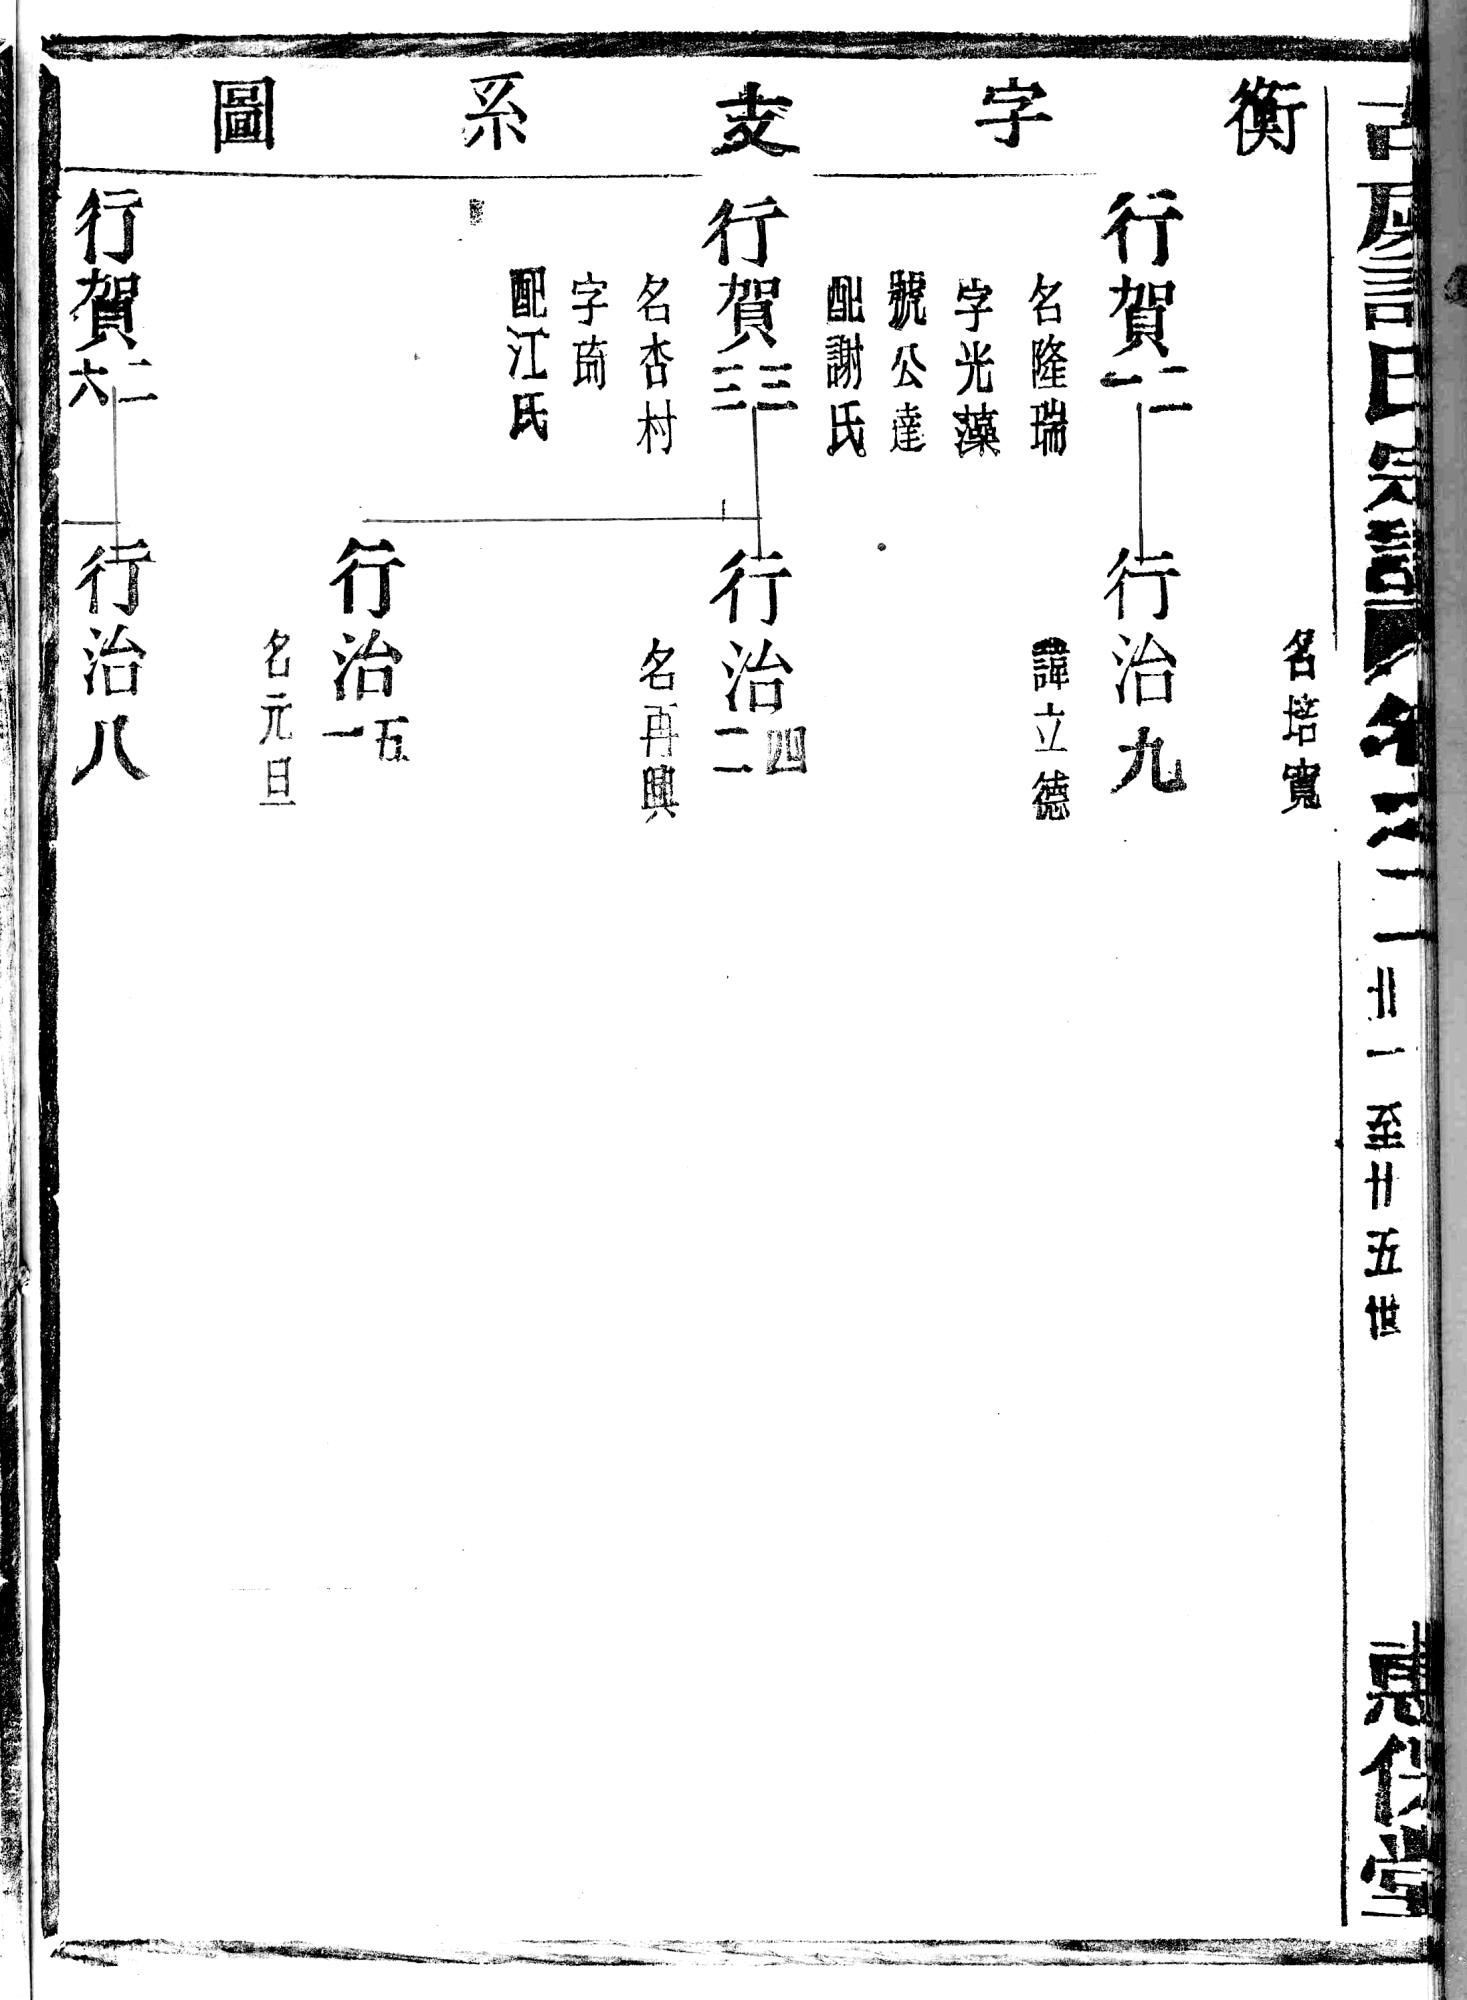 古虞許氏宗譜 卷之二一 廿一至廿五世
衡字支系圖
名培寬
行賀二一
名隆瑞
字光藻
號公達
配謝氏
行治九
諱立德
行賀三三
名杏村
字琦
配江氏
行治四二
名再興
行治五一
名元旦
行賀二六
行治八